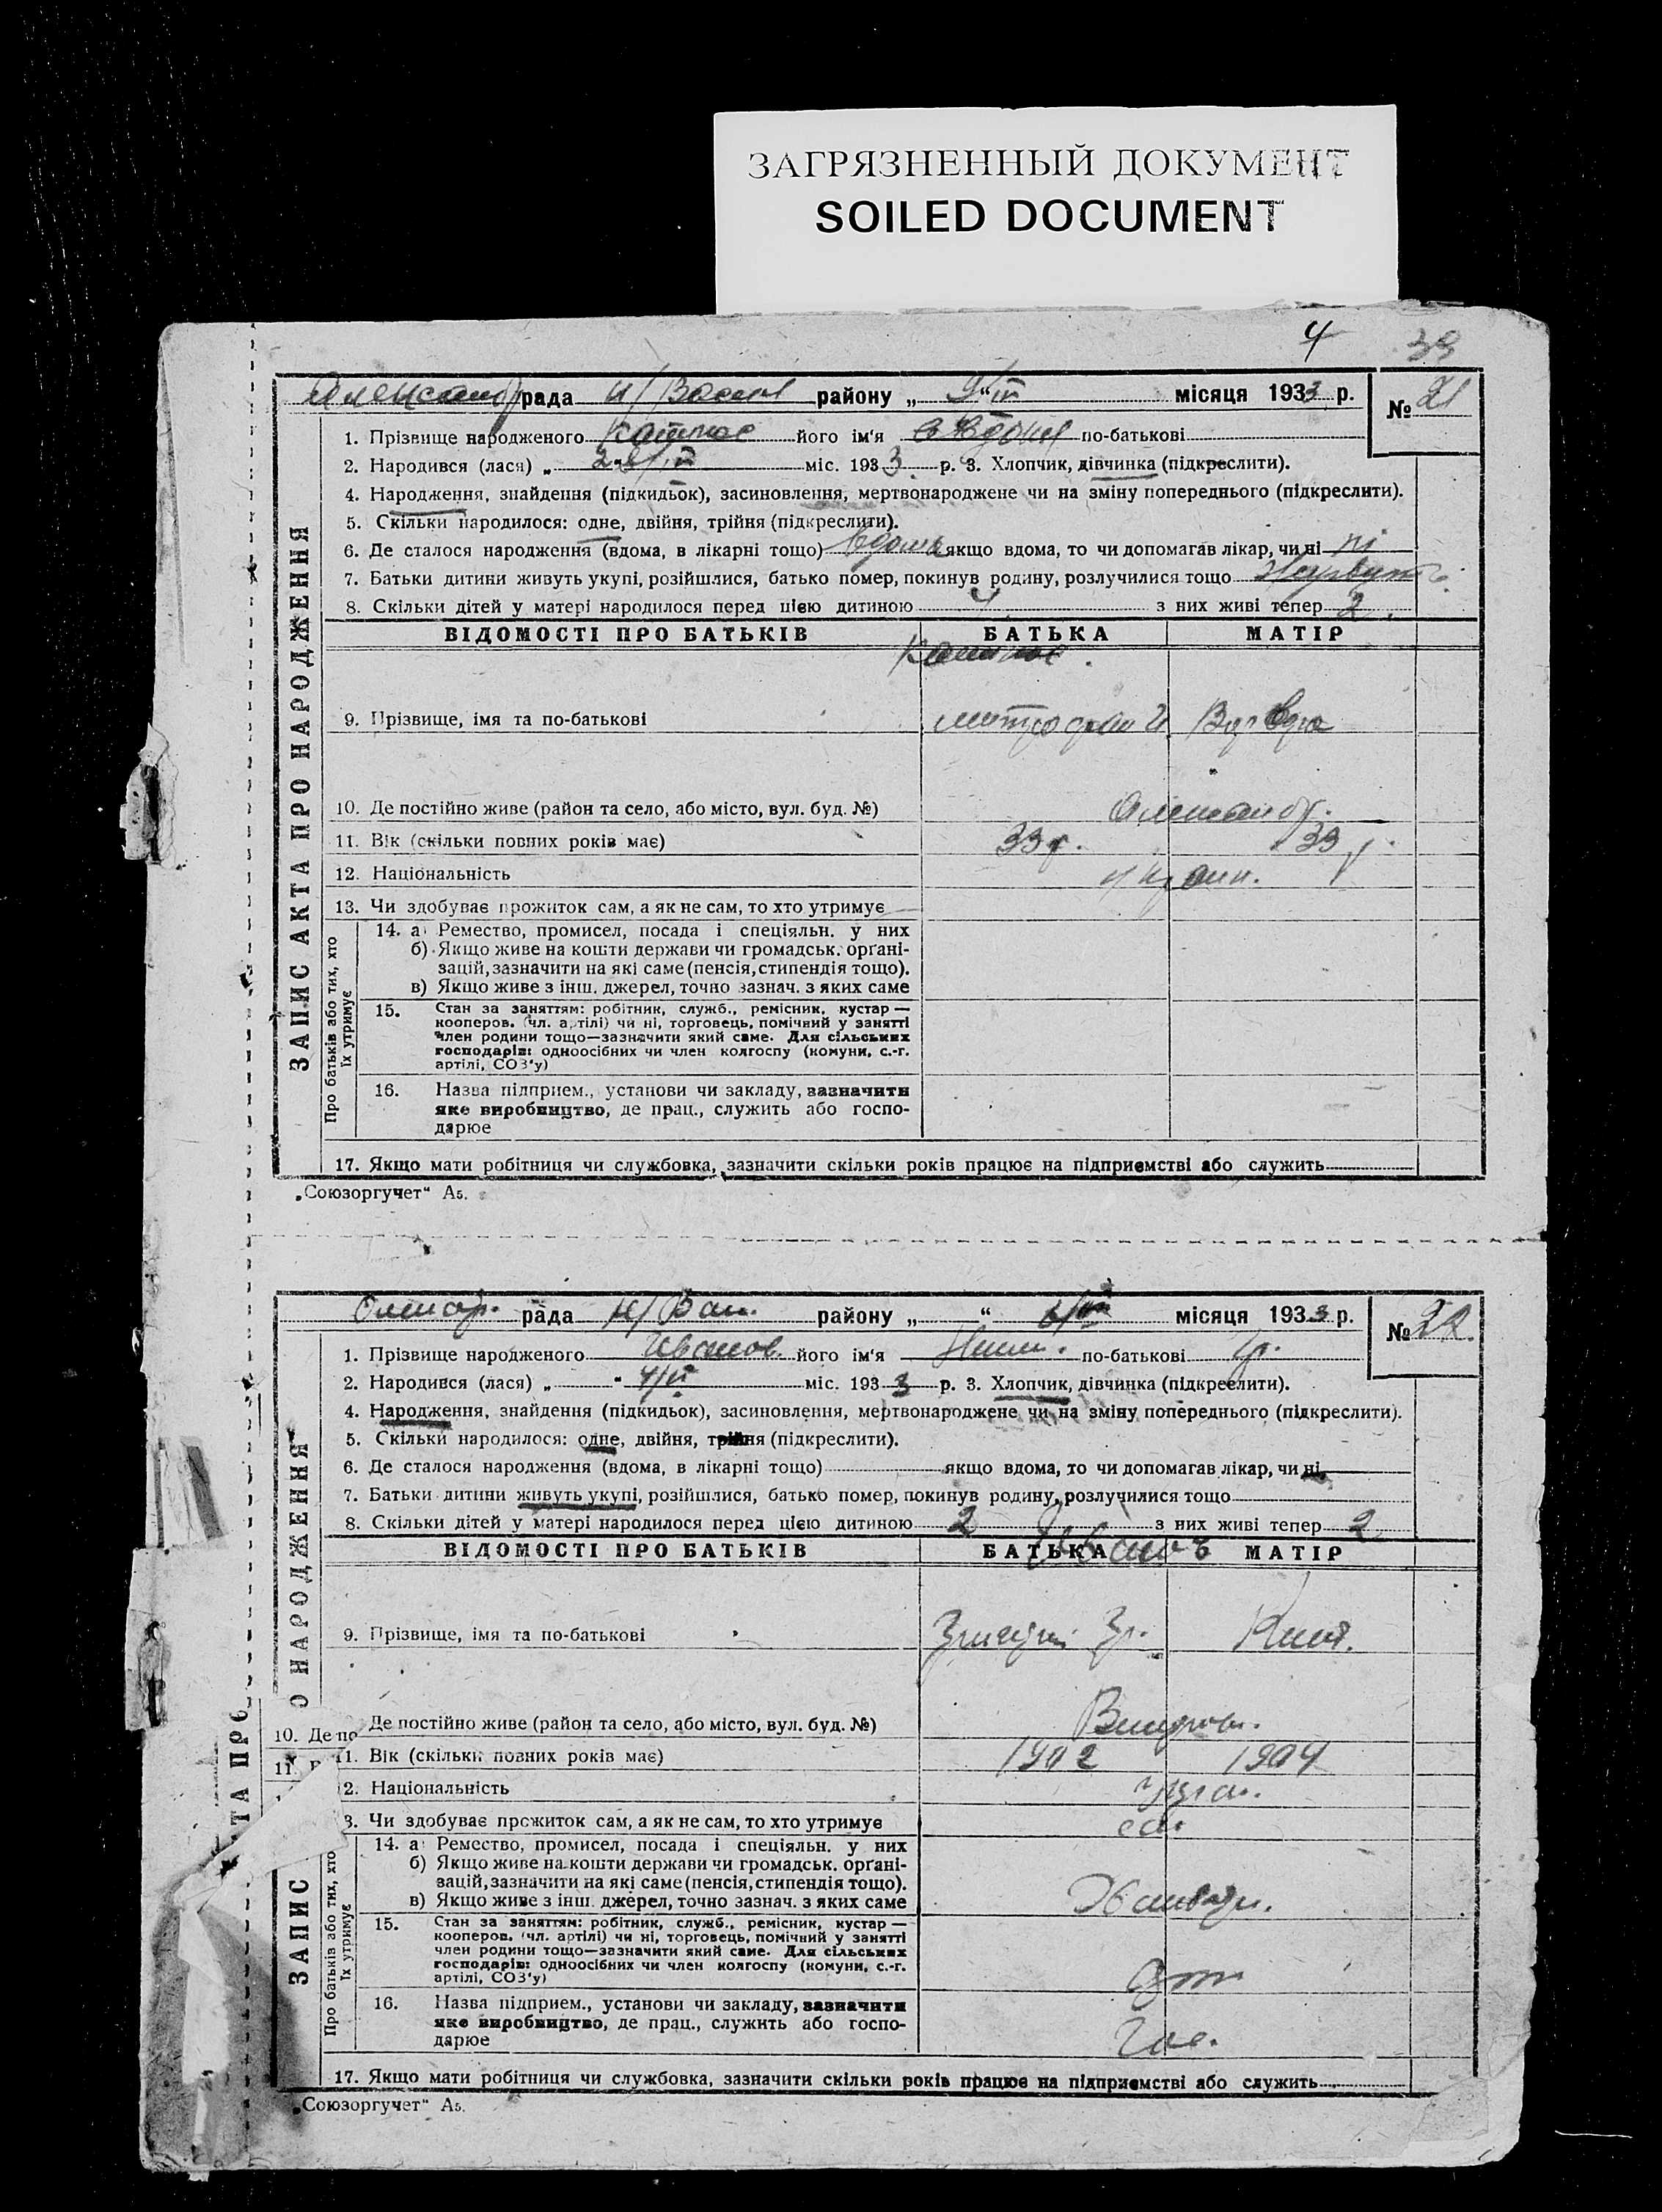 ЗАГРЯЗНЕННЫЙ ДОКУМЕНТ
SOILED DOCUMENT
4 39
рада району „ “ місяця 1933 р. № 21
1. Прізвище народженого його ім'я по-батькові
2. Народився (лася) „ міс. 1933 р. 3. Хлопчик, дівчинка (підкреслити).
4. Народження, знайдення (підкидьок), засиновлення, мертвонароджене чи на зміну попереднього (підкреслити).
5. Скільки народилося: одне, двійня, трійня (підкреслити).
6. Де сталося народження (вдома, в лікарні тощо) вдома якщо вдома, то чи допомагав лікар, чи ні ні
7. Батьки дитини живуть укупі, розійшлися, батько помер, покинув родину, розлучилися тощо
8. Скільки дітей у матері народилося перед цією дитиною 4 з них живі тепер 2.
ВІДОМОСТІ ПРО БАТЬКІВ БАТЬКА МАТІР
9. Прізвище, імя та по-батькові
10. Де постійно живе (район та село, або місто, вул. буд. №)
11. Вік (скільки повних років має) 33 г. 33 г.
12. Національність
13. Чи здобуває прожиток сам, а як не сам, то хто утримує
14. а) Ремество, промисел, посада і спеціяльн. у них
б) Якщо живе на кошти держави чи громадськ. орґані-
зацій, зазначити на які саме (пенсія, стипендія тощо).
в) Якщо живе з інш. джерел, точно зазнач. з яких саме
15. Стан за заняттям: робітник, служб., ремісник, кустар —
кооперов. (чл. артілі) чи ні, торговець, помічний у занятті
член родини тощо—зазначити який саме. Для сільських
господарів: одноосібних чи член колгоспу (комуни, с.-г.
артілі, СОЗ'у)
16. Назва підприєм., установи чи закладу, зазначити
яке виробництво, де прац., служить або госпо-
дарює
17. Якщо мати робітниця чи службовка, зазначити скільки років працює на підприємстві або служить
ЗАПИС АКТА ПРО НАРОДЖЕННЯ
Про батьків або тих, хто
їх утримує
„Союзоргучет“ А5.
рада району „ “ місяця 1933 р. № 22.
1. Прізвище народженого Иванов. його ім'я по-батькові
2. Народився (лася) „ “ міс. 1933 р. 3. Хлопчик, дівчинка (підкреслити).
4. Народження, знайдення (підкидьок), засиновлення, мертвонароджене чи на зміну попереднього (підкреслити).
5. Скільки народилося: одне, двійня, трійня (підкреслити).
6. Де сталося народження (вдома, в лікарні тощо) якщо вдома, то чи допомагав лікар, чи ні
7. Батьки дитини живуть укупі, розійшлися, батько помер, покинув родину, розлучилися тощо
8. Скільки дітей у матері народилося перед цією дитиною 2 з них живі тепер 2
ВІДОМОСТІ ПРО БАТЬКІВ БАТЬКА МАТІР
9. Прізвище, імя та по-батькові
10. Де по Де постійно живе (район та село, або місто, вул. буд. №)
11. 11. Вік (скільки повних років має) 1902 1904
2. Національність
3. Чи здобуває прожиток сам, а як не сам, то хто утримує
14. а) Ремество, промисел, посада і спеціяльн. у них
б) Якщо живе на кошти держави чи громадськ. орґані-
зацій, зазначити на які саме (пенсія, стипендія тощо).
в) Якщо живе з інш. джерел, точно зазнач. з яких саме
15. Стан за заняттям: робітник, служб., ремісник, кустар —
кооперов. (чл. артілі) чи ні, торговець, помічний у занятті
член родини тощо—зазначити який саме. Для сільських
господарів: одноосібних чи член колгоспу (комуни, с.-г.
артілі, СОЗ'у)
16. Назва підприєм., установи чи закладу, зазначити
яке виробництво, де прац., служить або госпо-
дарює
17. Якщо мати робітниця чи службовка, зазначити скільки років працює на підприємстві або служить
ЗАПИС О НАРОДЖЕННЯ
ТА ПРО
Про батьків або тих, хто
їх утримує
„Союзоргучет“ А5.